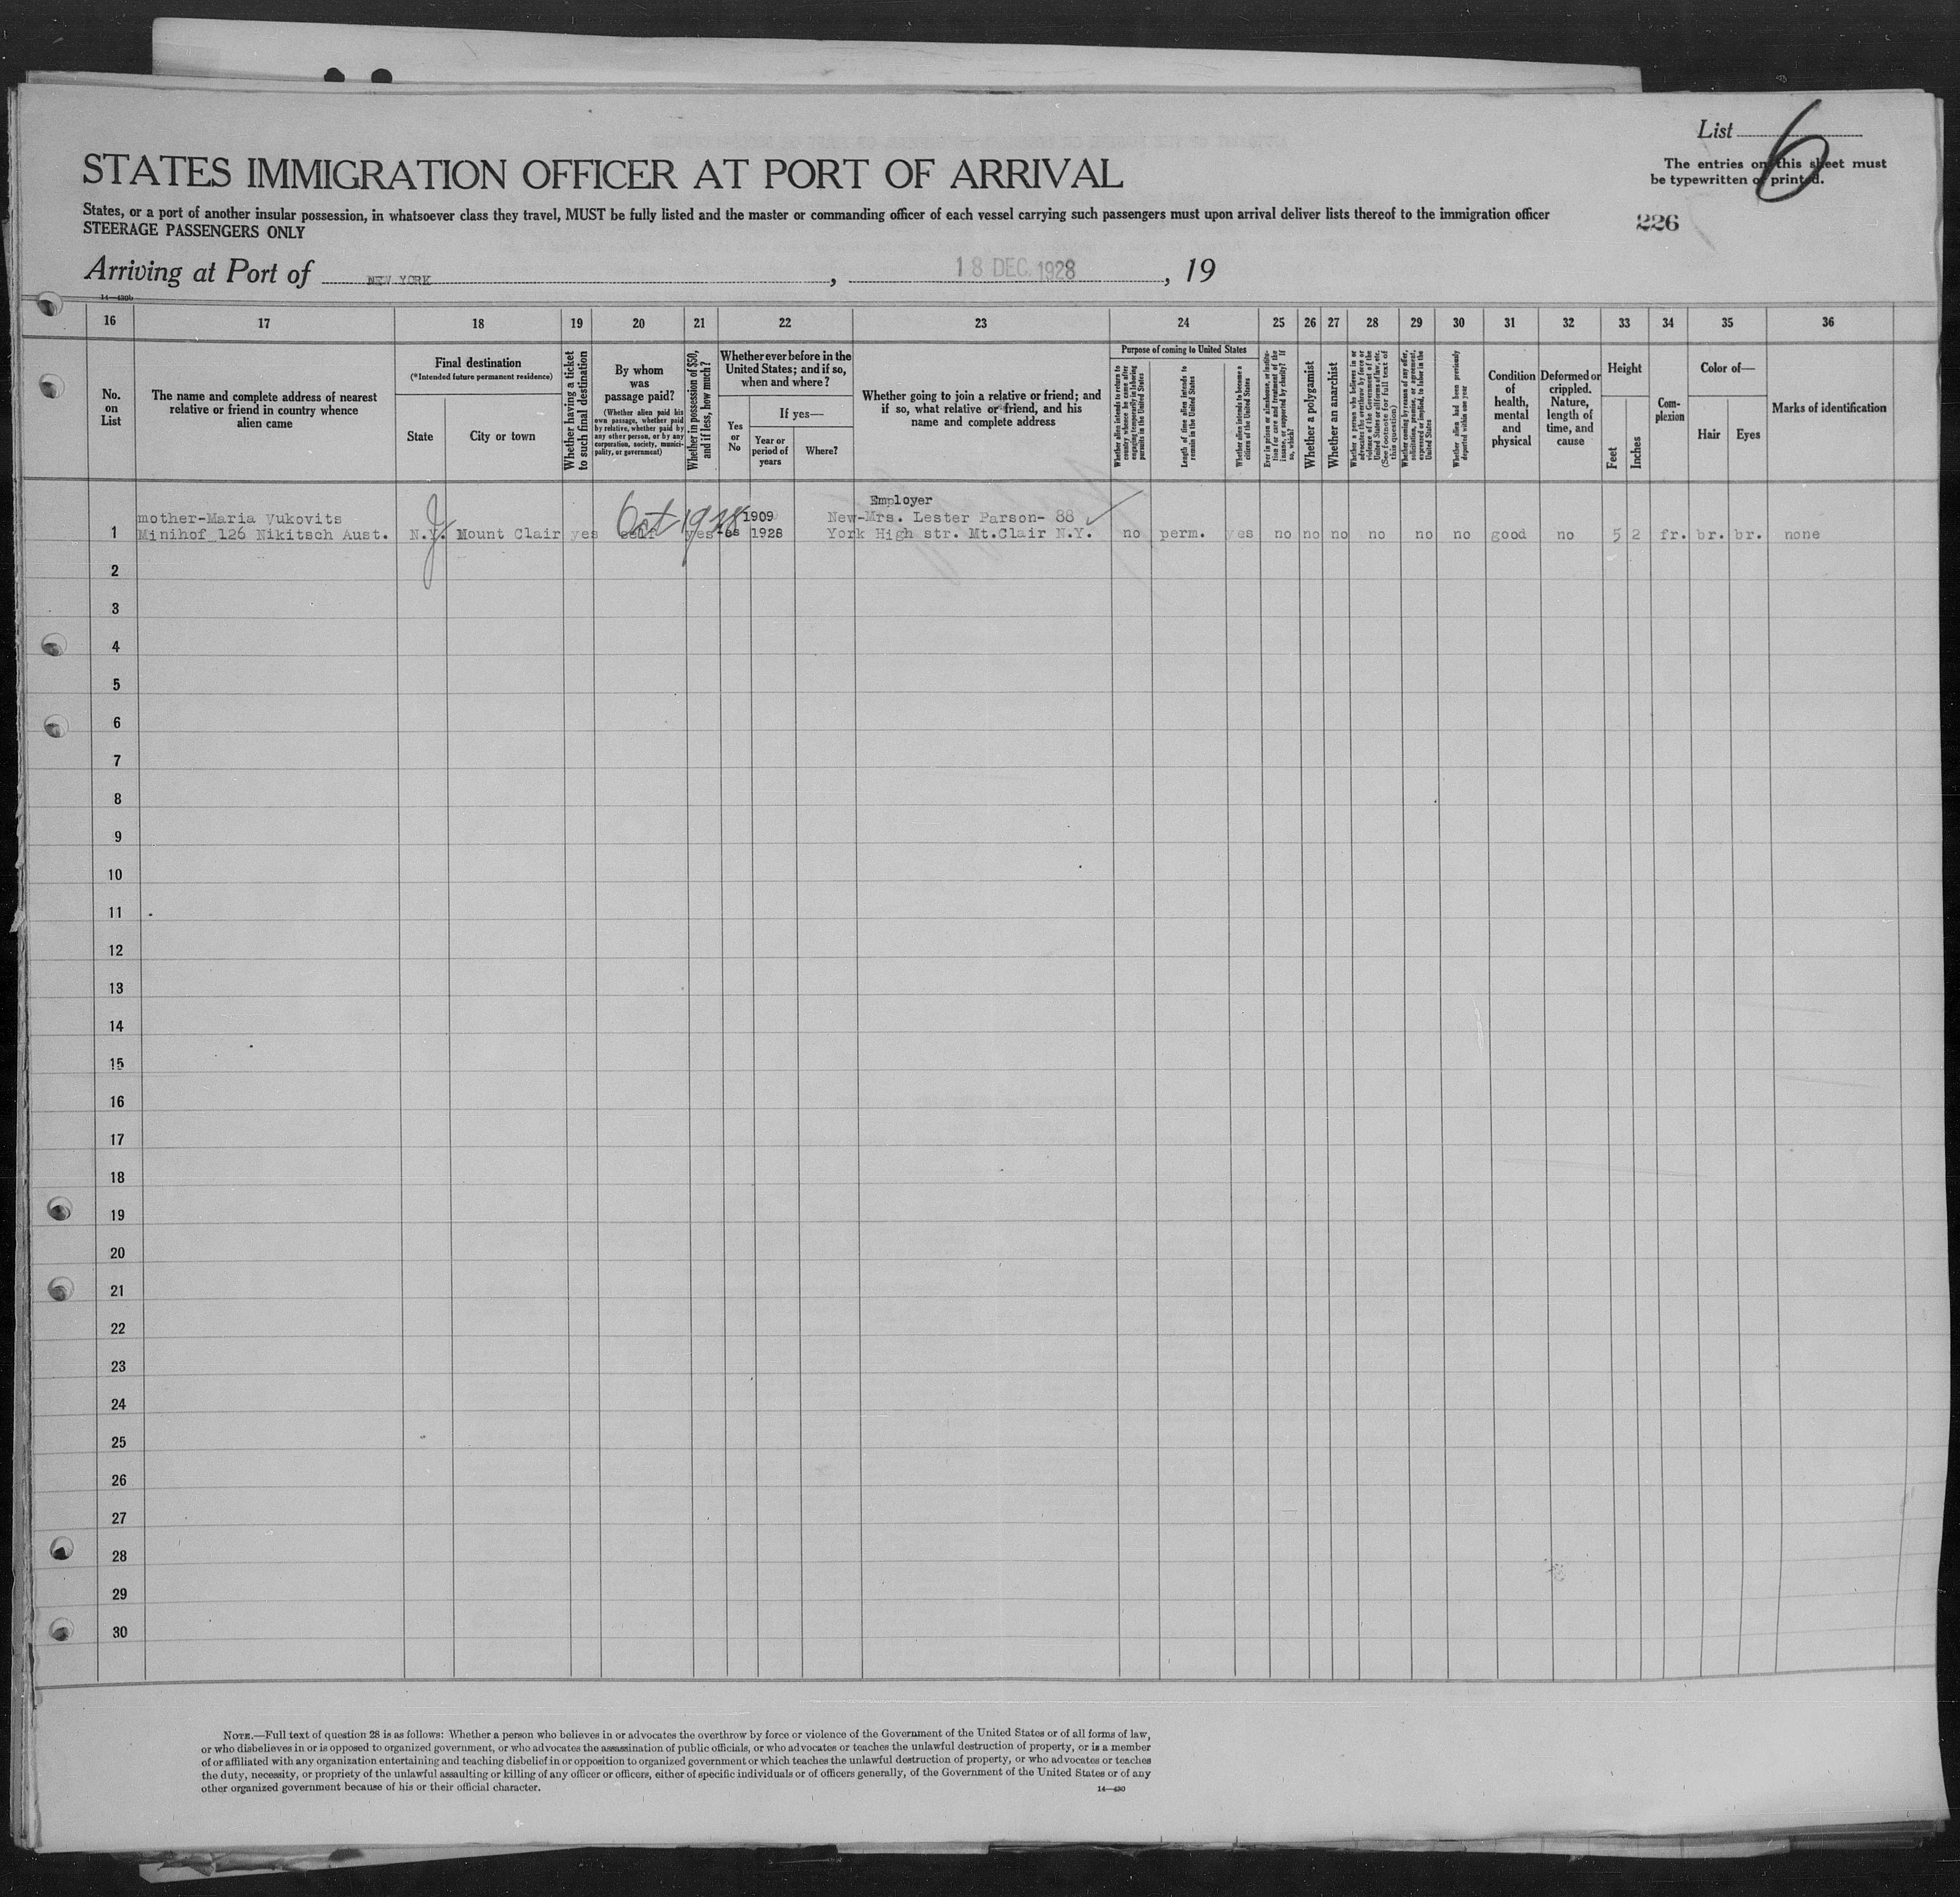 List 6
The entries on this sheet must
be typewritten or printed.
STATES IMMIGRATION OFFICER AT PORT OF ARRIVAL
States, or a port of another insular possession, in whatsoever class they travel, MUST be fully listed and the master or commanding officer of each vessel carrying such passengers must upon arrival deliver lists thereof to the immigration officer
STEERAGE PASSENGERS ONLY
226
Arriving at Port of NEW YORK, 18 DEC. 1928, 19
14—430b
16 17 18 19 20 21 22 23 24 25 26 27 28 29 30 31 32 33 34 35 36
No.
on
List
The name and complete address of nearest
relative or friend in country whence
alien came
Final destination
(*Intended future permanent residence)
State
City or town
Whether having a ticket
to such final destination
By whom
was
passage paid?
(Whether alien paid his
own passage, whether paid
by relative, whether paid by
any other person, or by any
corporation, society, munici-
pality, or government)
Whether in possession of $50,
and if less, how much?
Whether ever before in the
United States; and if so,
when and where?
Yes
or
No
If yes—
Year or
period of
years
Where?
Whether going to join a relative or friend; and
if so, what relative or friend, and his
name and complete address
Purpose of coming to United States
Whether alien intends to return to
country whence he came after
engaging temporarily in laboring
pursuits in the United States
Length of time alien intends to
remain in the United States
Whether alien intends to become a
citizen of the United States
Ever in prison or almshouse, or institu-
tion for care and treatment of the
insane, or supported by charity? If
so, which?
Whether a polygamist
Whether an anarchist
Whether a person who believes in or
advocates the overthrow by force or
violence of the Government of the
United States or all forms of law, etc.
(See footnote for full text of
this question)
Whether coming by reason of any offer,
solicitation, promise, or agreement,
expressed or implied, to labor in the
United States
Whether alien had been previously
deported within one year
Condition
of
health,
mental
and
physical
Deformed or
crippled.
Nature,
length of
time, and
cause
Height
Feet
Inches
Com-
plexion
Color of—
Hair
Eyes
Marks of identification
Employer
mother-Maria Vukovits J Oct 1928 1909 New-Mrs. Lester Parson- 88
1 Minihof 126 Nikitsch Aust. N.Y. Mount Clair yes self yes 1928 York High str. Mt.Clair N.Y. no perm. yes no no no no no no good no 5 2 fr. br. br. none
2
3
4
5
6
7
8
9
10
11
12
13
14
15
16
17
18
19
20
21
22
23
24
25
26
27
28
29
30
NOTE.—Full text of question 28 is as follows: Whether a person who believes in or advocates the overthrow by force or violence of the Government of the United States or of all forms of law,
or who disbelieves in or is opposed to organized government, or who advocates the assassination of public officials, or who advocates or teaches the unlawful destruction of property, or is a member
of or affiliated with any organization entertaining and teaching disbelief in or opposition to organized government or which teaches the unlawful destruction of property, or who advocates or teaches
the duty, necessity, or propriety of the unlawful assaulting or killing of any officer or officers, either of specific individuals or of officers generally, of the Government of the United States or of any
other organized government because of his or their official character.
14—430